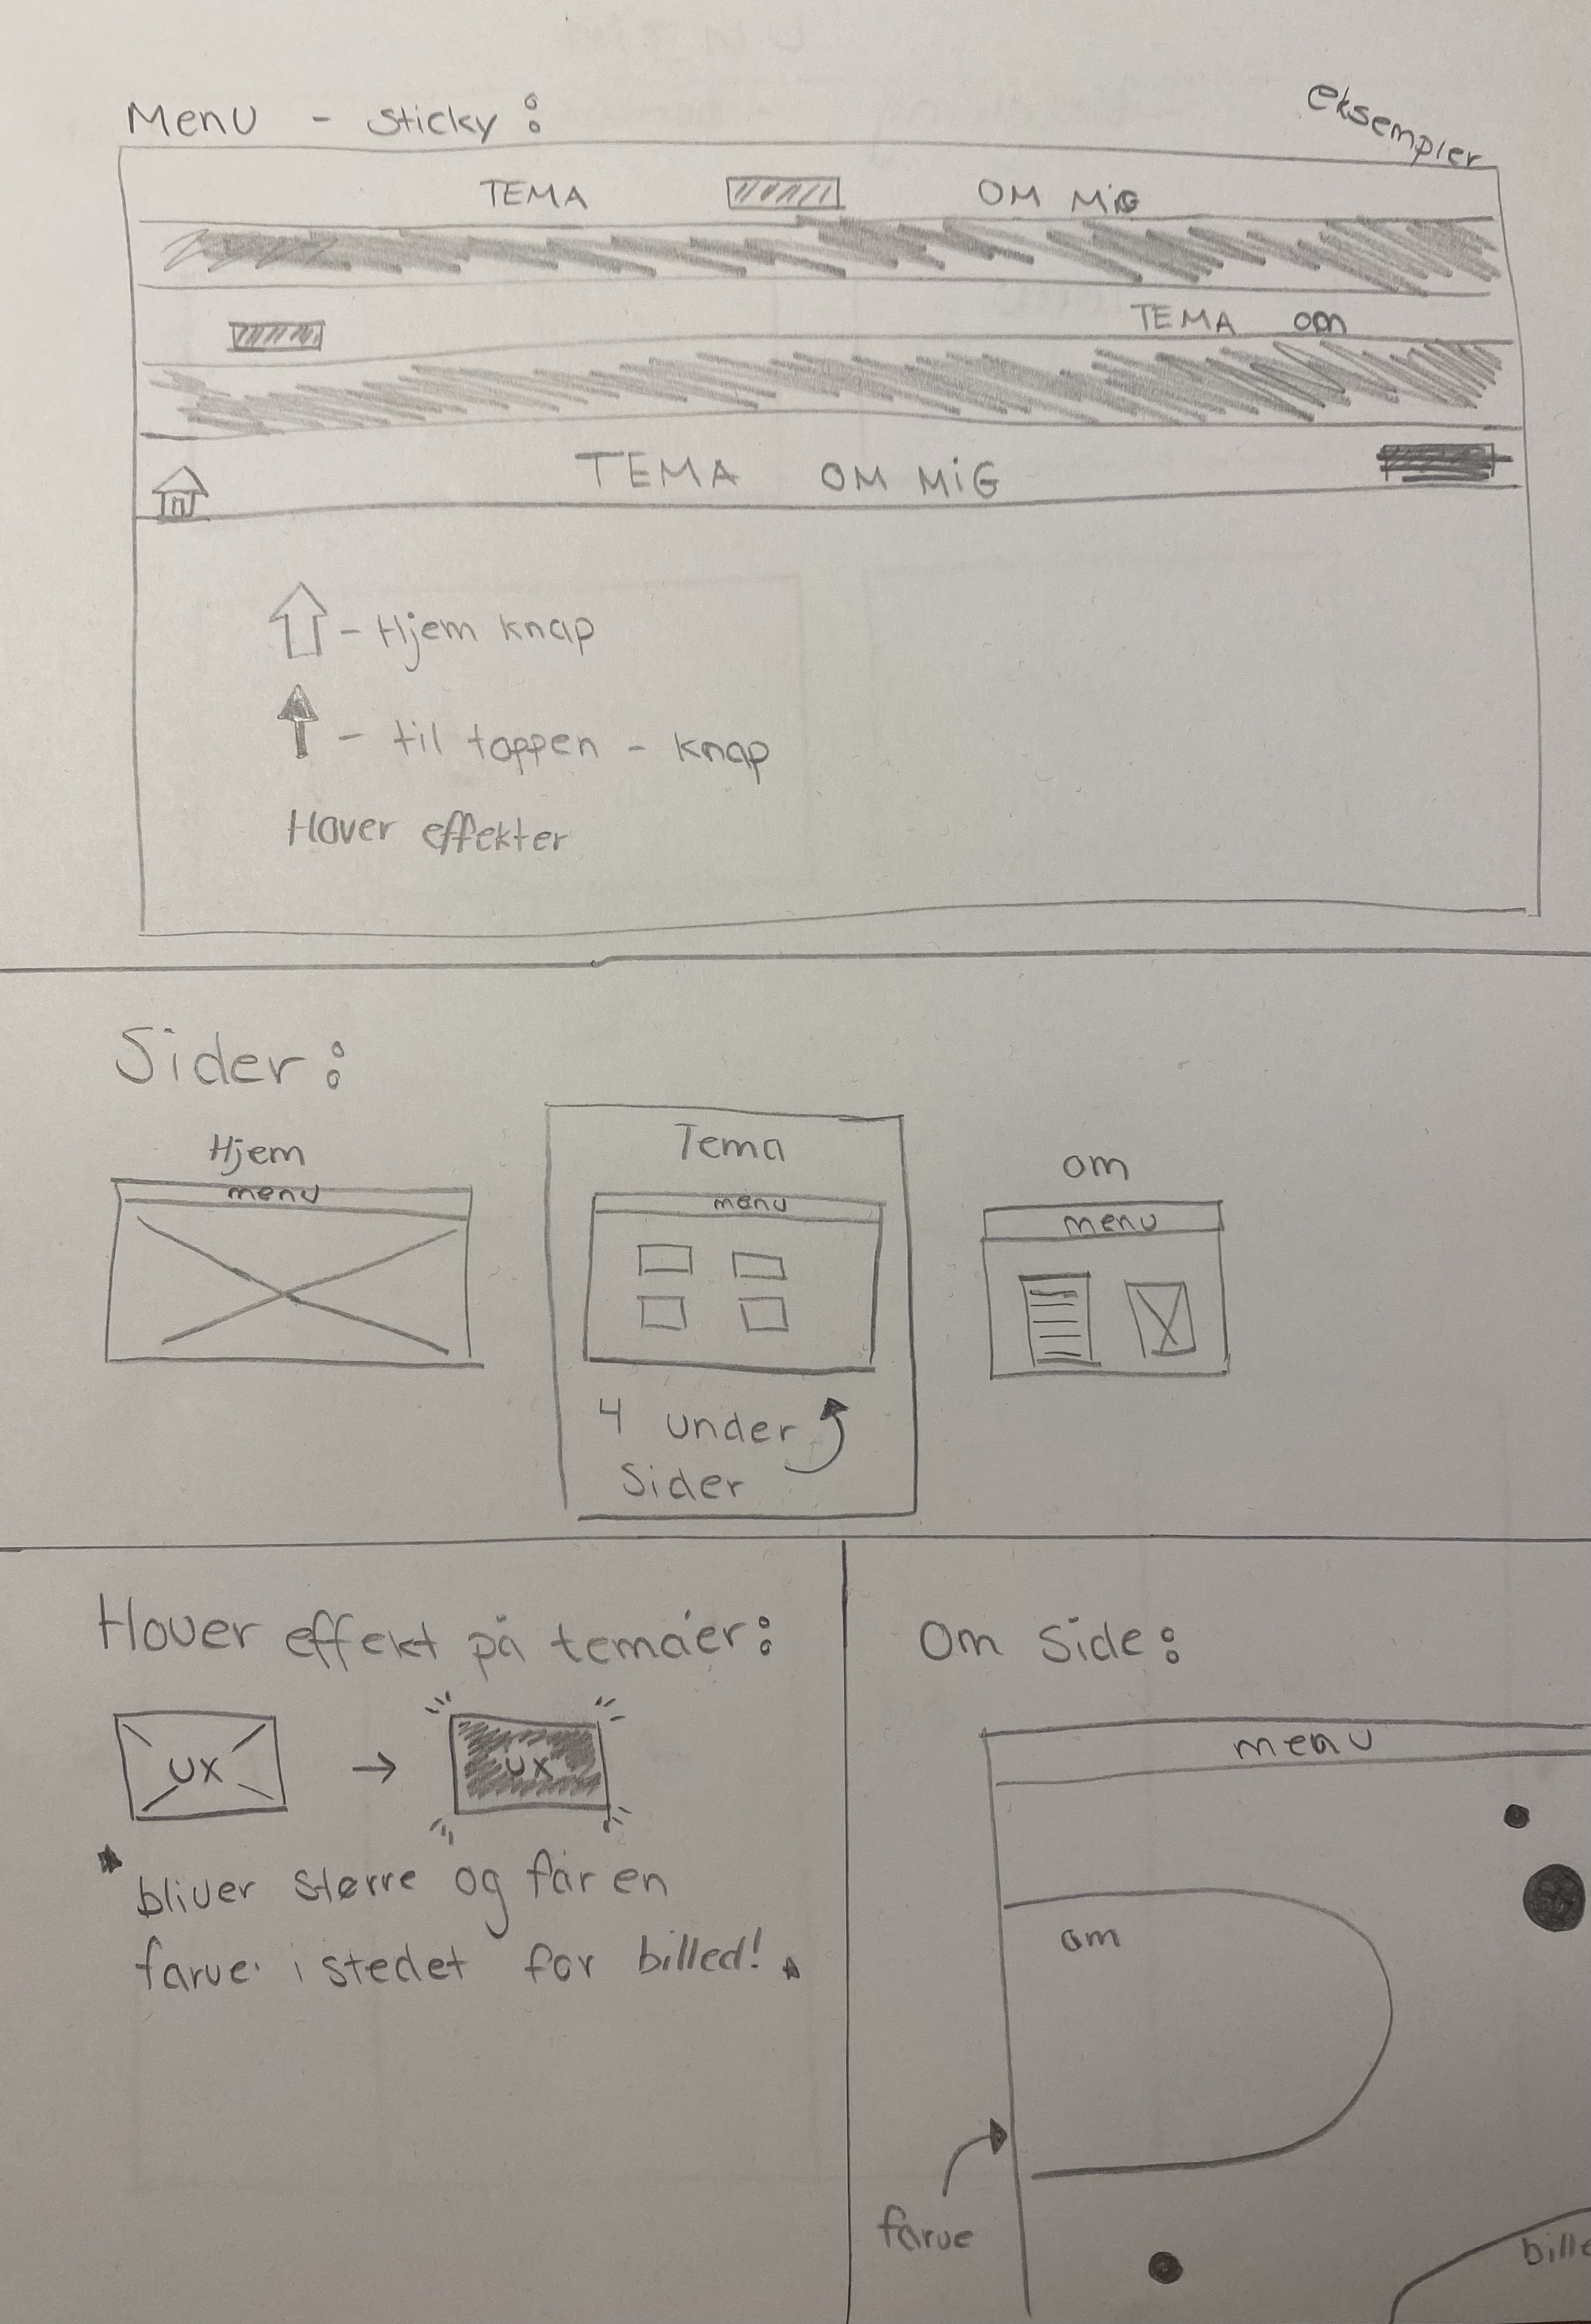 Menu - sticky:
eksempler
TEMA OM MiG
TEMA om
TEMA OM MiG
- Hjem knap
- til toppen - knap
Hover effekter
Sider:
Hjem
menu
Tema
menu
4 under
sider
om
menu
Hover effekt på temáer:
UX → UX
bliver større og får en
farve i stedet for billed!
Om side:
menu
om
farve
bille